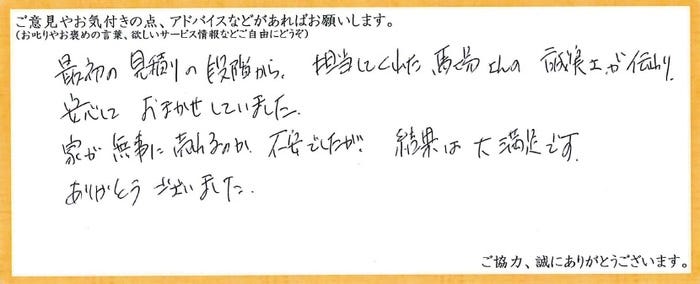 ご意見やお気付きの点、アドバイスなどがあればお願いします。
(お叱りやお褒めの言葉、欲しいサービス情報などご自由にどうぞ)
最初の見積りの段階から、担当してくれた馬場さんの誠実さが伝わり
安心して おまかせしていました。
家が無事に売れるのか 不安でしたが、結果は大満足です。
ありがとうございました。
ご協力、誠にありがとうございます。